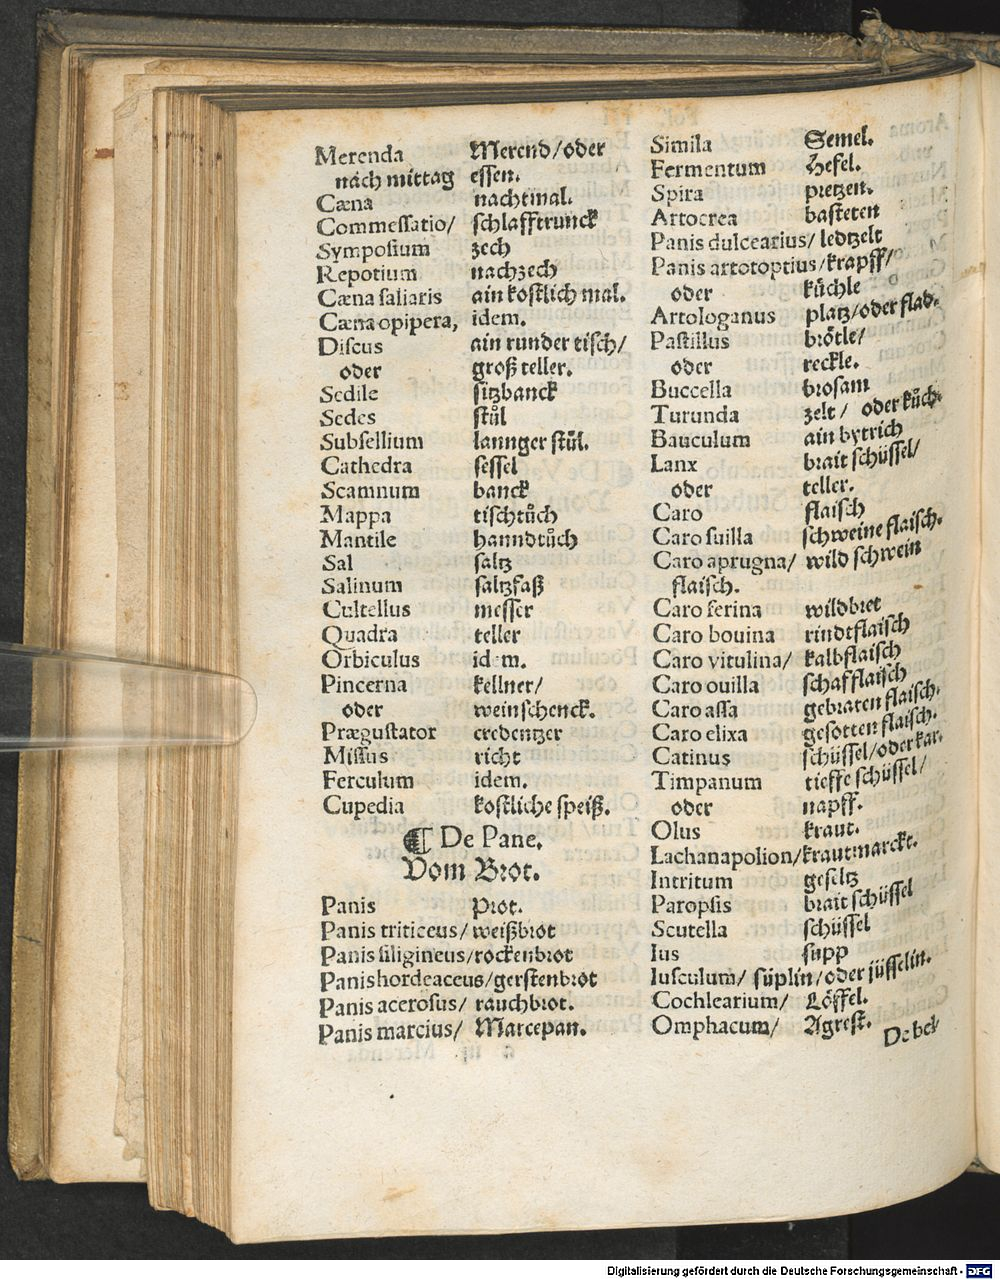 Merenda Merend/oder
nach mittag essen.
Cæna nachtmal.
Commessatio/ schlafftrunck
Symposium zech
Repotium nachzech
Cæna saliaris ain kostlich mal.
Cæna opipera, idem.
Discus ain runder tisch/
oder groß teller.
Sedile sitzbanck
Sedes stůl
Subsellium lannger stůl.
Cathedra sessel
Scamnum banck
Mappa tischtůch
Mantile hanndtůch
Sal saltz
Salinum saltzfaß
Cultellus messer
Quadra teller
Orbiculus idem.
Pincerna kellner/
oder weinschenck.
Prægustator credentzer
Missus richt
Ferculum idem.
Cupedia kostliche speiß.
¶ De Pane.
Vom Brot.
Panis Prot.
Panis triticeus/ weißbrot
Panis siligineus/rockenbrot
Panis hordeaceus/gerstenbrot
Panis acerosus/ rauchbrot.
Panis marcius/ Marcepan.
Simila Semel.
Fermentum Hefel.
Spira pretzen.
Artocrea basteten
Panis dulcearius/ ledtzelt
Panis artotoptius/krapff/
oder küchle
Artologanus platz/oder flad.
Pastillus brötle/
oder reckle.
Buccella brosam
Turunda zelt/ oder küch.
Bauculum ain bytrich
Lanx brait schüssel/
oder teller.
Caro flaisch
Caro suilla schweine flaisch.
Caro aprugna/ wild schwein
flaisch.
Caro ferina wildbret
Caro bouina rindtflaisch
Caro vitulina/ kalbflaisch
Caro ouilla schafflaisch
Caro assa gebraten flaisch.
Caro elixa gesotten flaisch.
Catinus schüssel/oder kar.
Timpanum tieffe schüssel/
oder napff.
Olus kraut.
Lachanapolion/krautmarckt.
Intritum geseltz
Paropsis brait schüssel
Scutella schüssel
Ius supp
Iusculum/ süplin/oder jüsselin.
Cochlearium/ Löffel.
Omphacum/ Agrest.
De bel
Digitalisierung gefördert durch die Deutsche Forschungsgemeinschaft - DFG